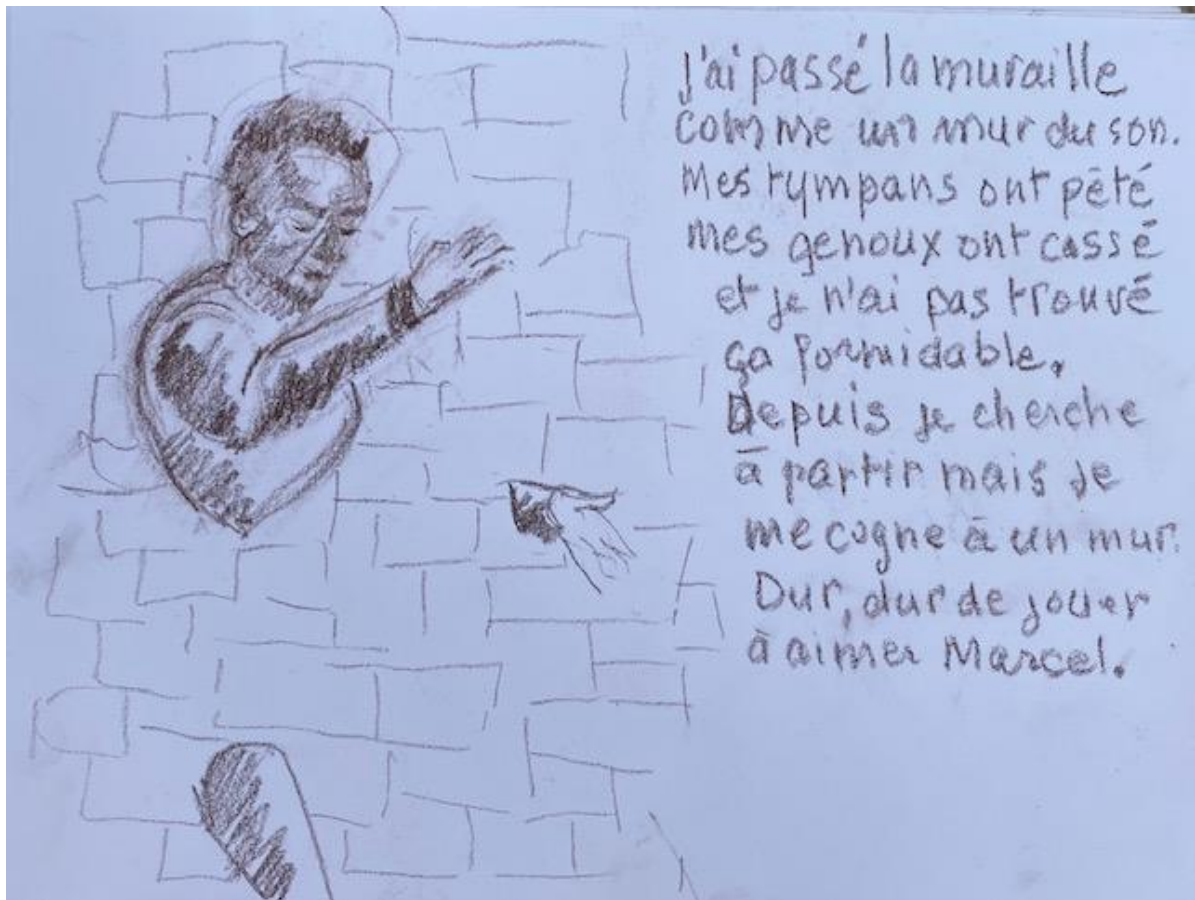 J'ai passé la muraille
comme un mur du son.
Mes tympans ont pété
mes genoux ont cassé
et je n'ai pas trouvé
ça formidable.
Depuis je cherche
à partir mais je
me cogne à un mur.
Dur, dur de jouer
à aimer Marcel.